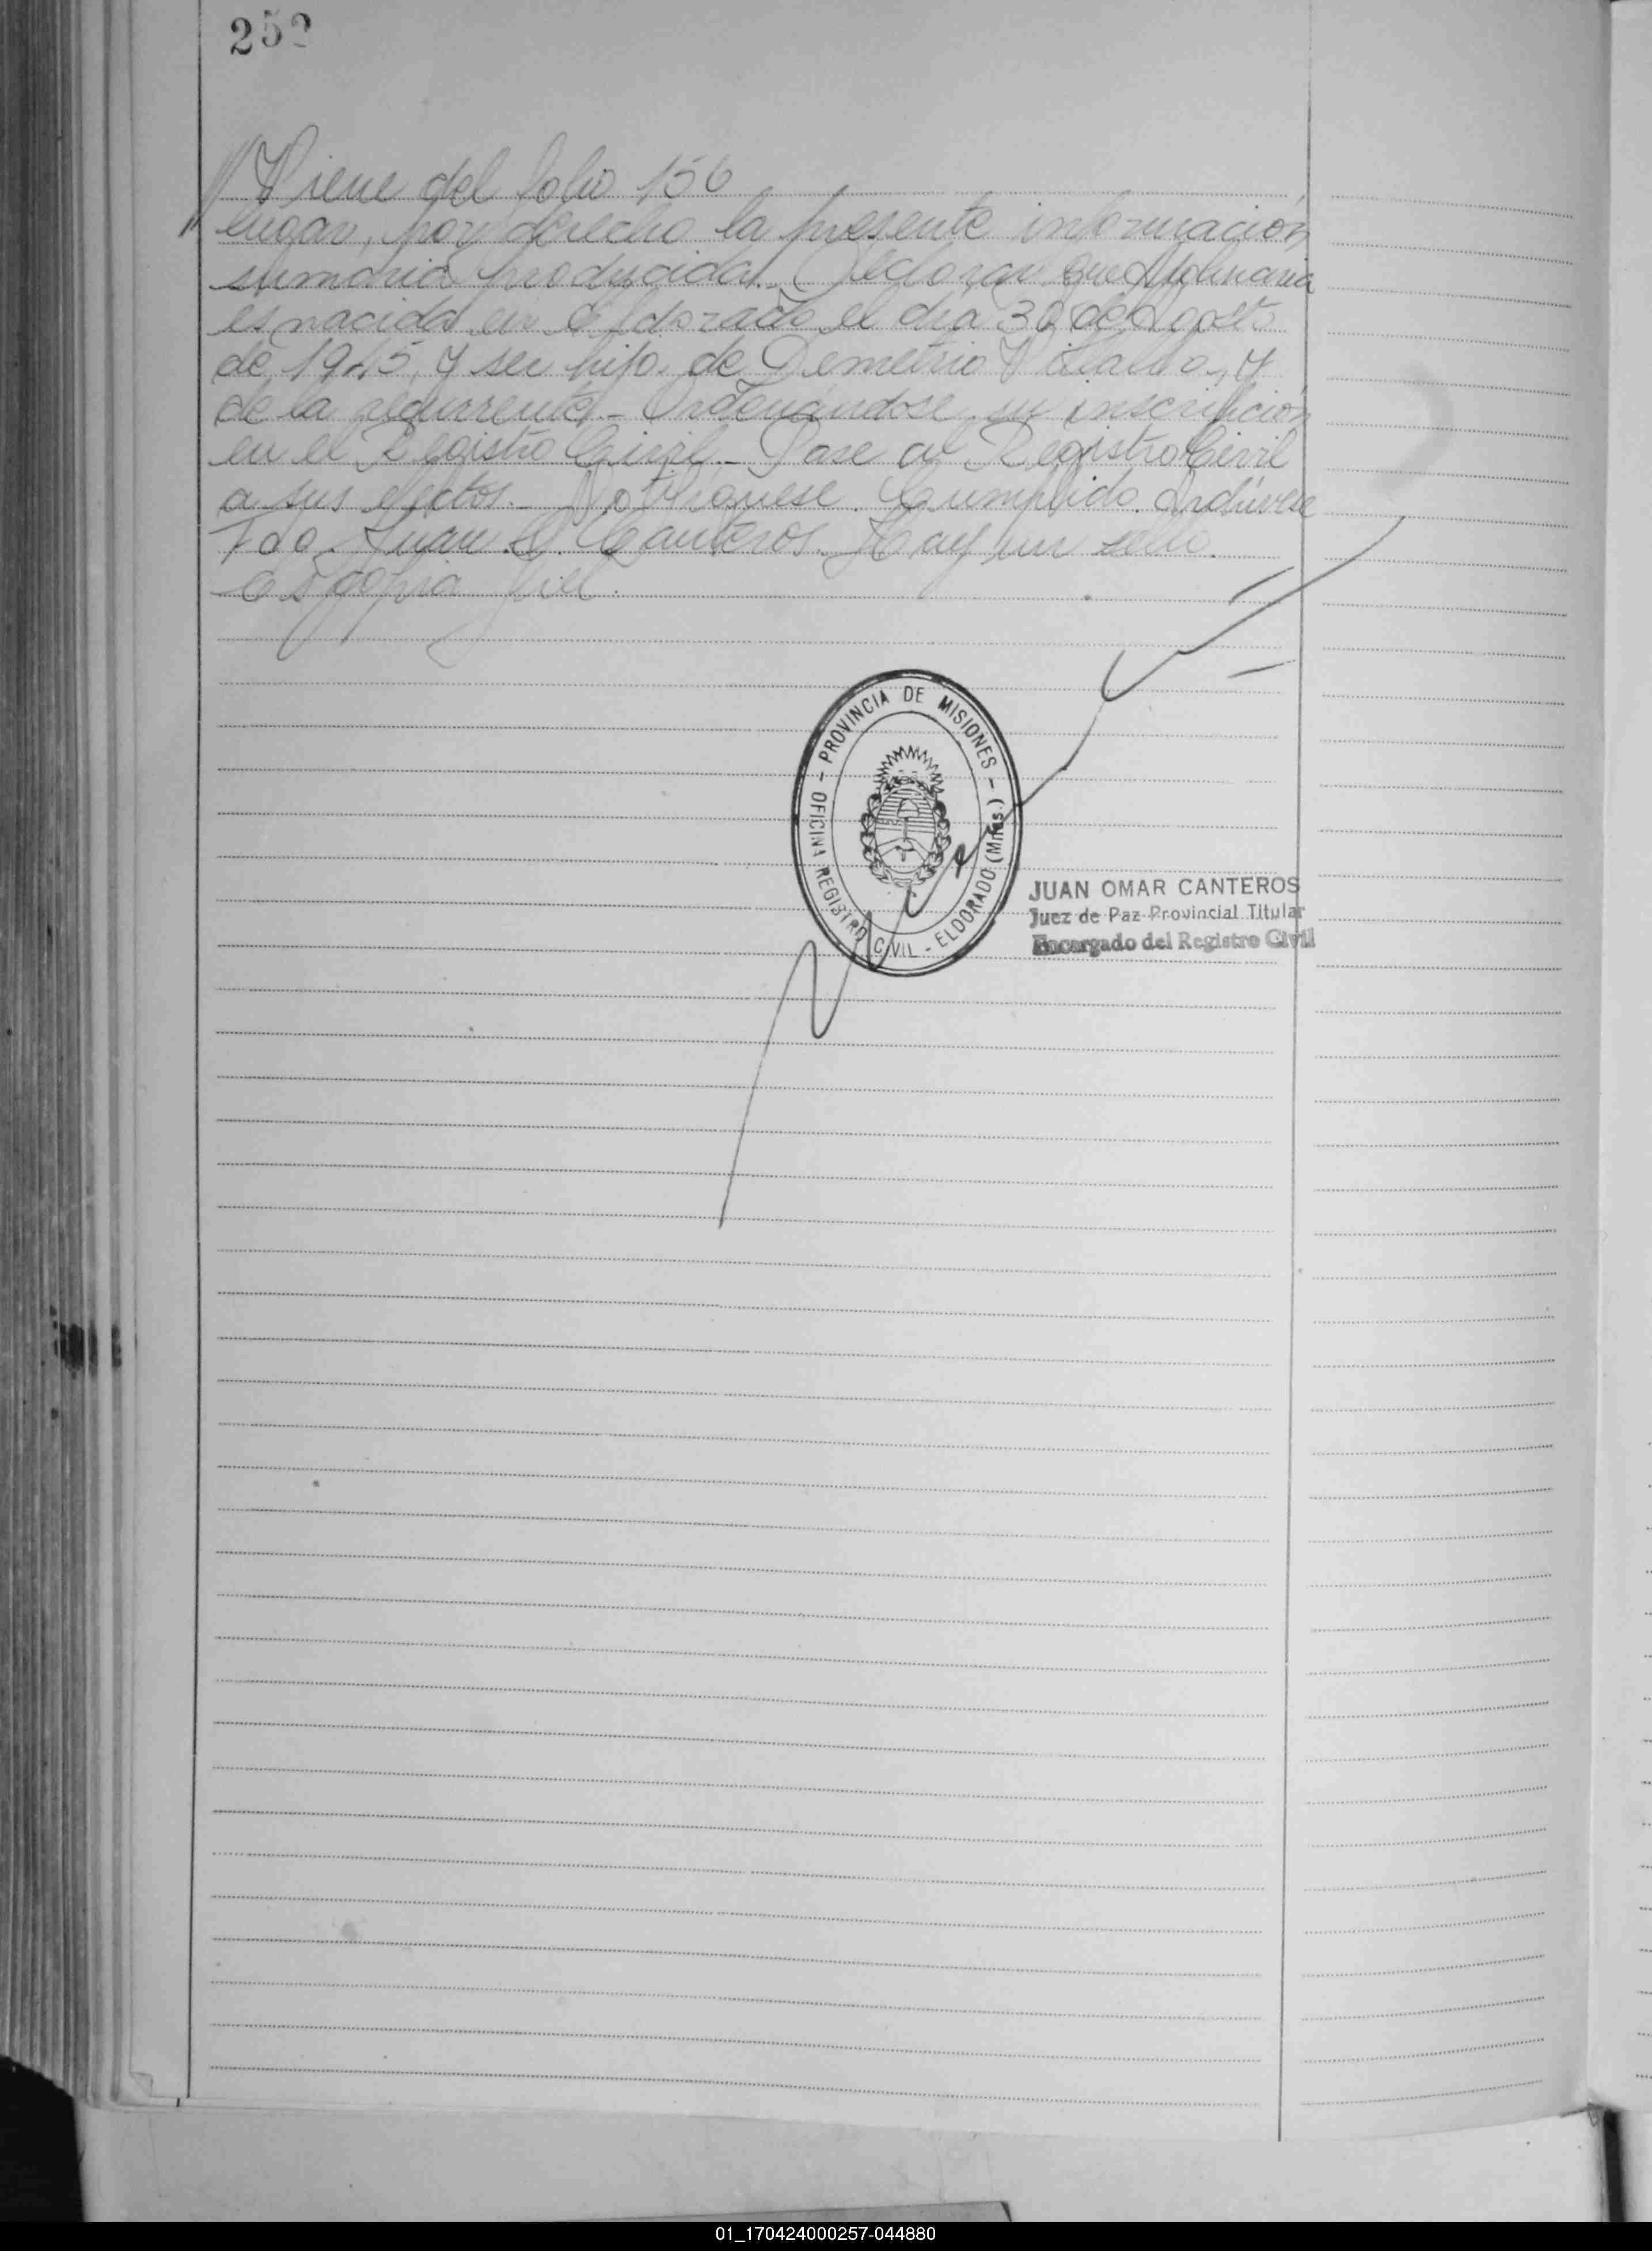 252
// Viene del folio 156
lugar, por derecho la presente información
sumaria producida.- Declarar que Apolinaria
es nacida en Eldorado el día 30 de Agosto
de 1945, y ser hija de Demetrio Villalba, y
de la recurrente.- Ordenándose su inscripción
en el Registro Civil.- Pase al Registro Civil
a sus efectos.- Notifíquese. Cumplido. Archívese
Fdo. Juan O. Canteros. Hay un sello.
Es copia fiel.
- PROVINCIA DE MISIONES -
OFICINA REGISTRO CIVIL - ELDORADO (Mnes.)
JUAN OMAR CANTEROS
Juez de Paz Provincial Titular
Encargado del Registro Civil
01_170424000257-044880